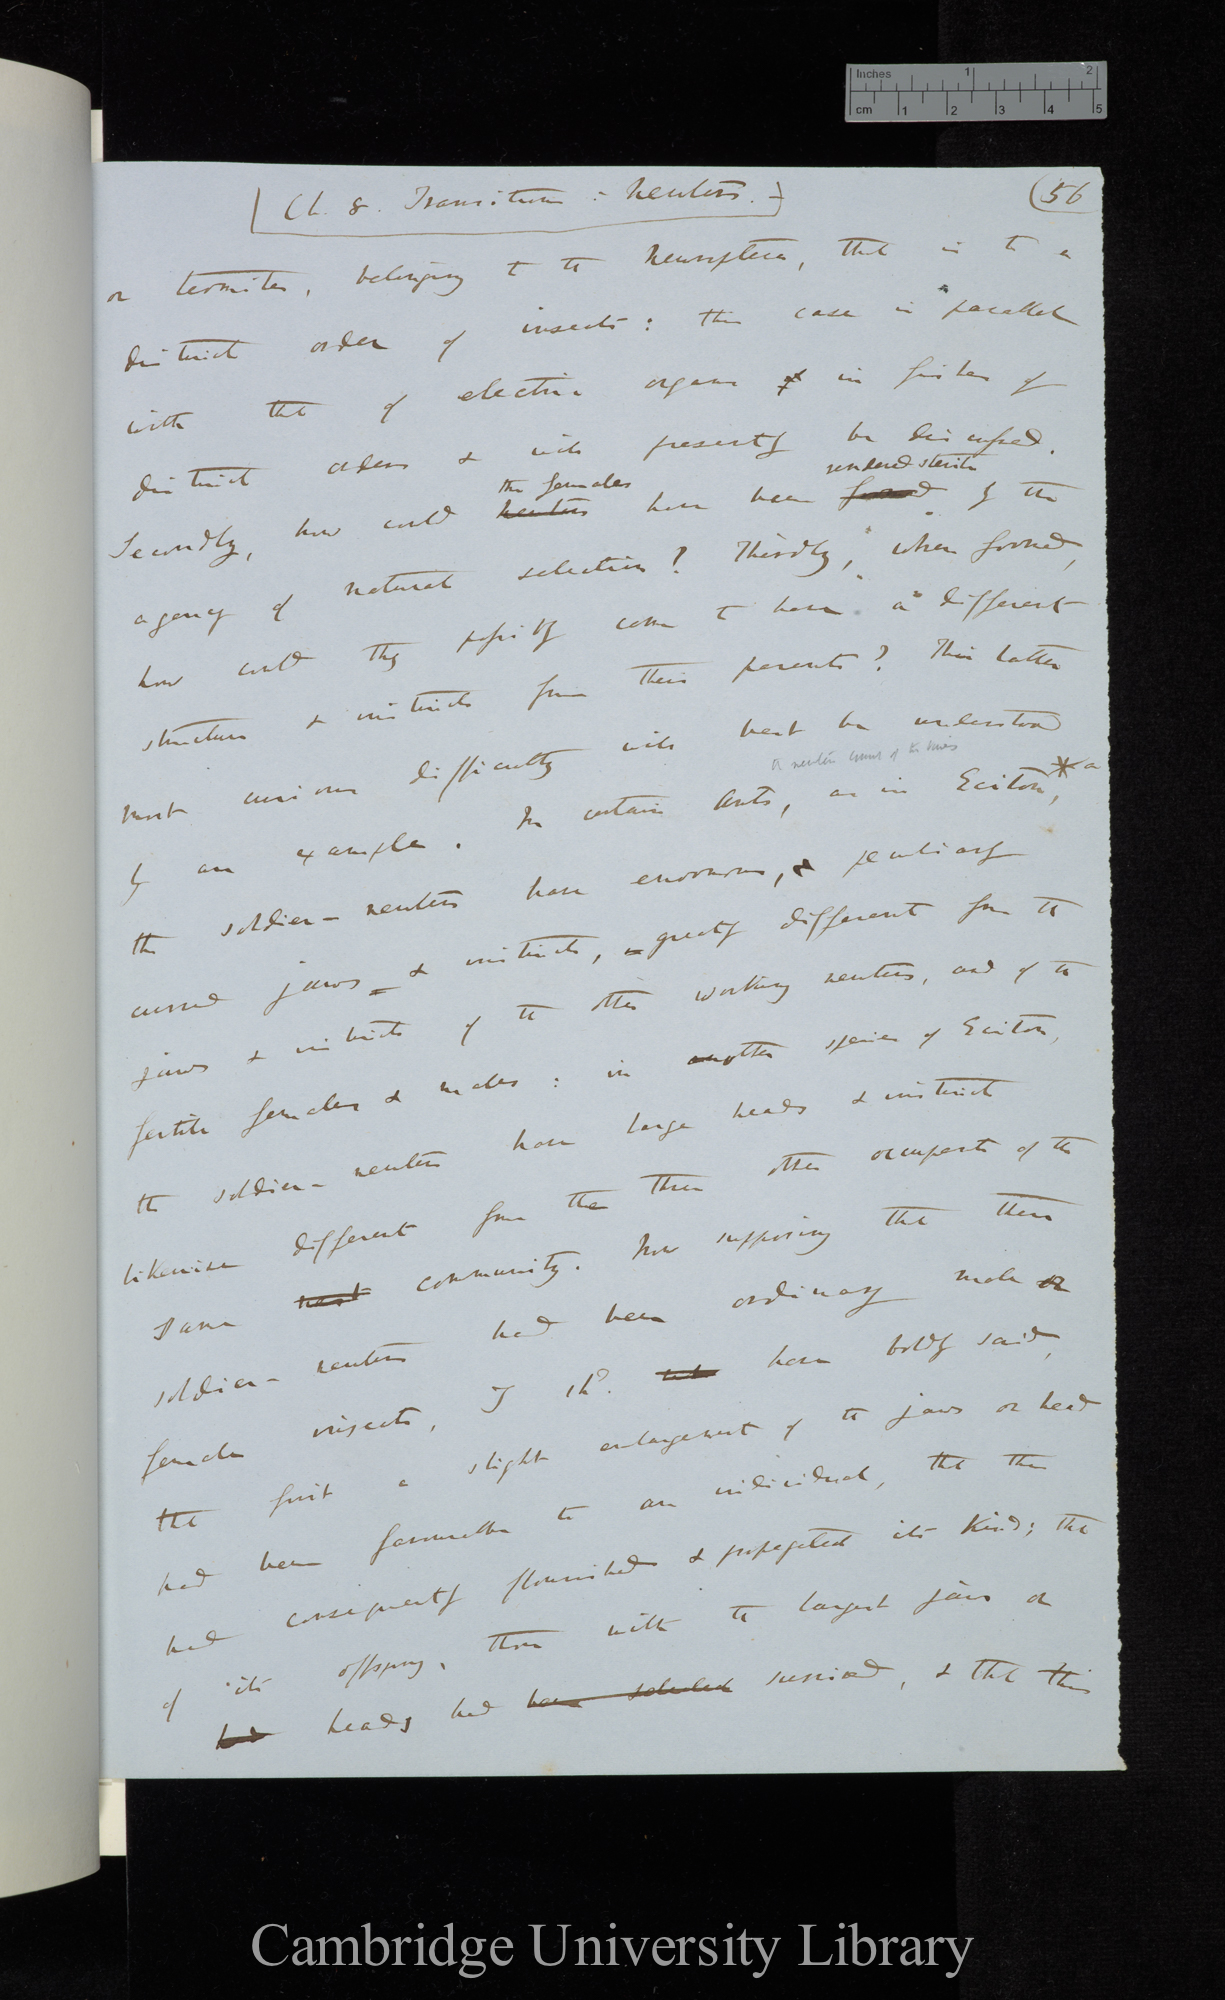 Inches 1 2
cm 1 2 3 4 5
Ch. 8. Transition: Neuters.
(56
or termites, belonging to the Neuroptera, that is to a
distinct order of insects: this case is parallel
with that of electric organs of in fishes of
distinct orders & will presently be discussed.
the females rendered sterile
Secondly, how could neuters have been formed by the
agency of natural selection? Thirdly, when formed,
how could they possibly come to have a different
structure & instincts from their parents? This latter
most curious difficulty will best be understood
or neuter
by an example. In certain Ants, as in Eciton,* a
the soldier-neuters have enormous, & peculiarly
curved jaws & instincts, greatly different from the
jaws & instincts of the other working neuters, and of the
fertile females & males: in another species of Eciton,
the soldier-neuters have large heads & instinct
likewise different from the three other occupants of the
same nest community. Now supposing that these
soldier-neuters had been ordinary male or
female insects, I shd. have boldly said,
that first a slight enlargement of the jaws or head
had been favourable to an individual, that this
had consequently flourished & propagated its kind; that
of its offspring, those with the largest jaws or
had heads had been selected survived, & that this
Cambridge University Library